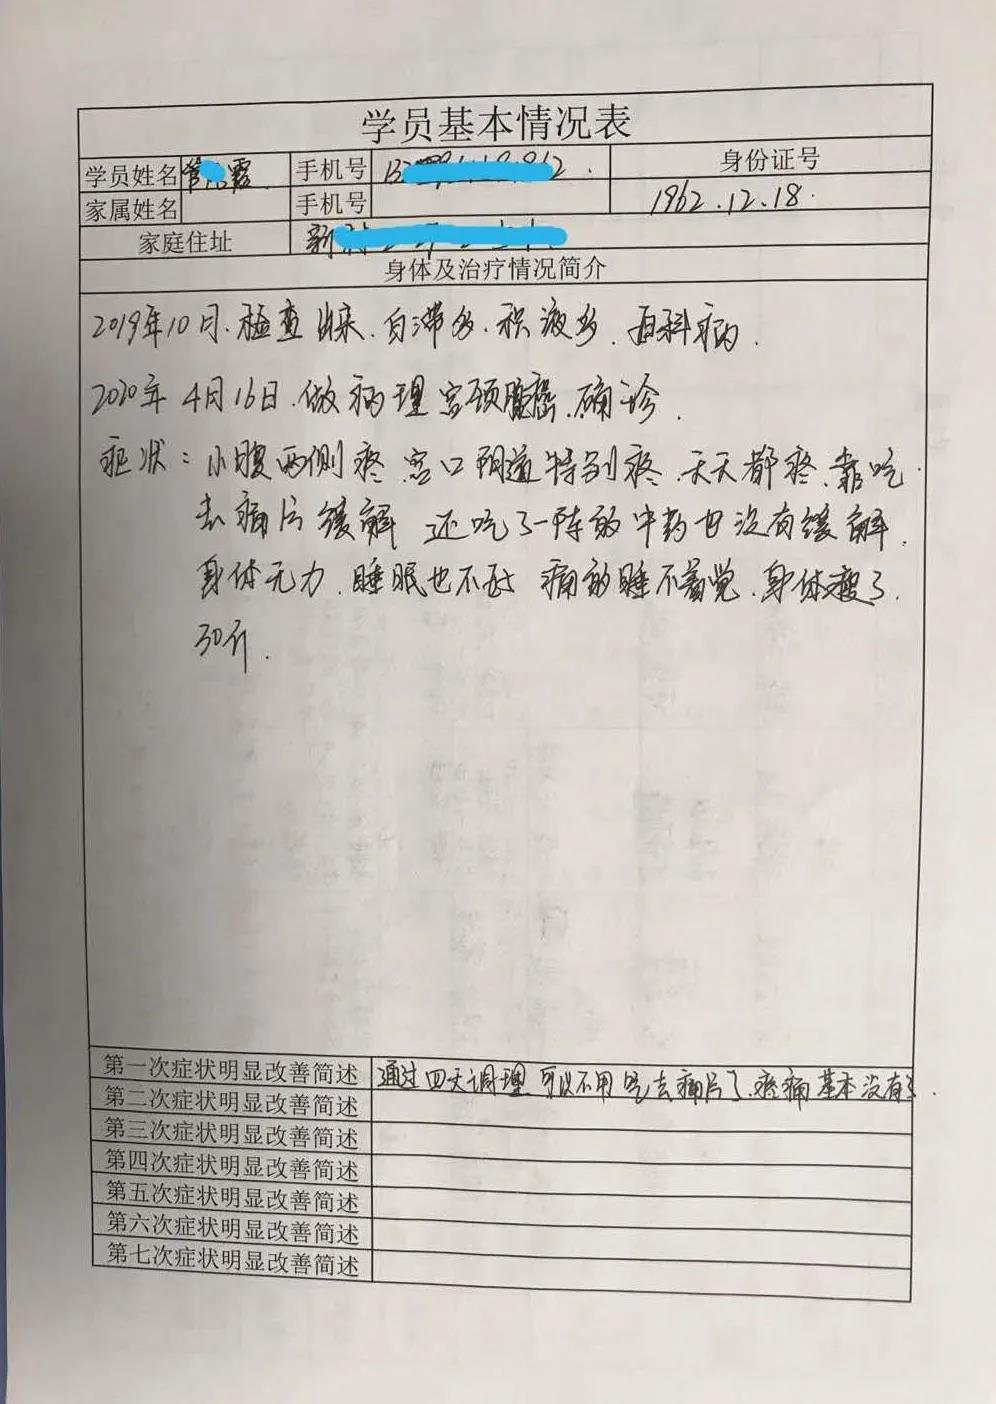 学员基本情况表
学员姓名 管 霞 手机号 身份证号
家属姓名 手机号 1962.12.18.
家庭住址 新
身体及治疗情况简介
2019年10月.检查出来.白滞多.积液多.百科病.
2020年4月16日.做病理宫颈腺癌.确诊.
症状:小腹两侧疼.宫口阴道特别疼.天天都疼.靠吃
去痛片缓解 还吃了一阵的中药也没有缓解.
身体无力.睡眠也不好 痛的睡不着觉.身体瘦了.
30斤.
第一次症状明显改善简述 通过四天调理 可以不用吃去痛片了.疼痛基本没有了.
第二次症状明显改善简述
第三次症状明显改善简述
第四次症状明显改善简述
第五次症状明显改善简述
第六次症状明显改善简述
第七次症状明显改善简述